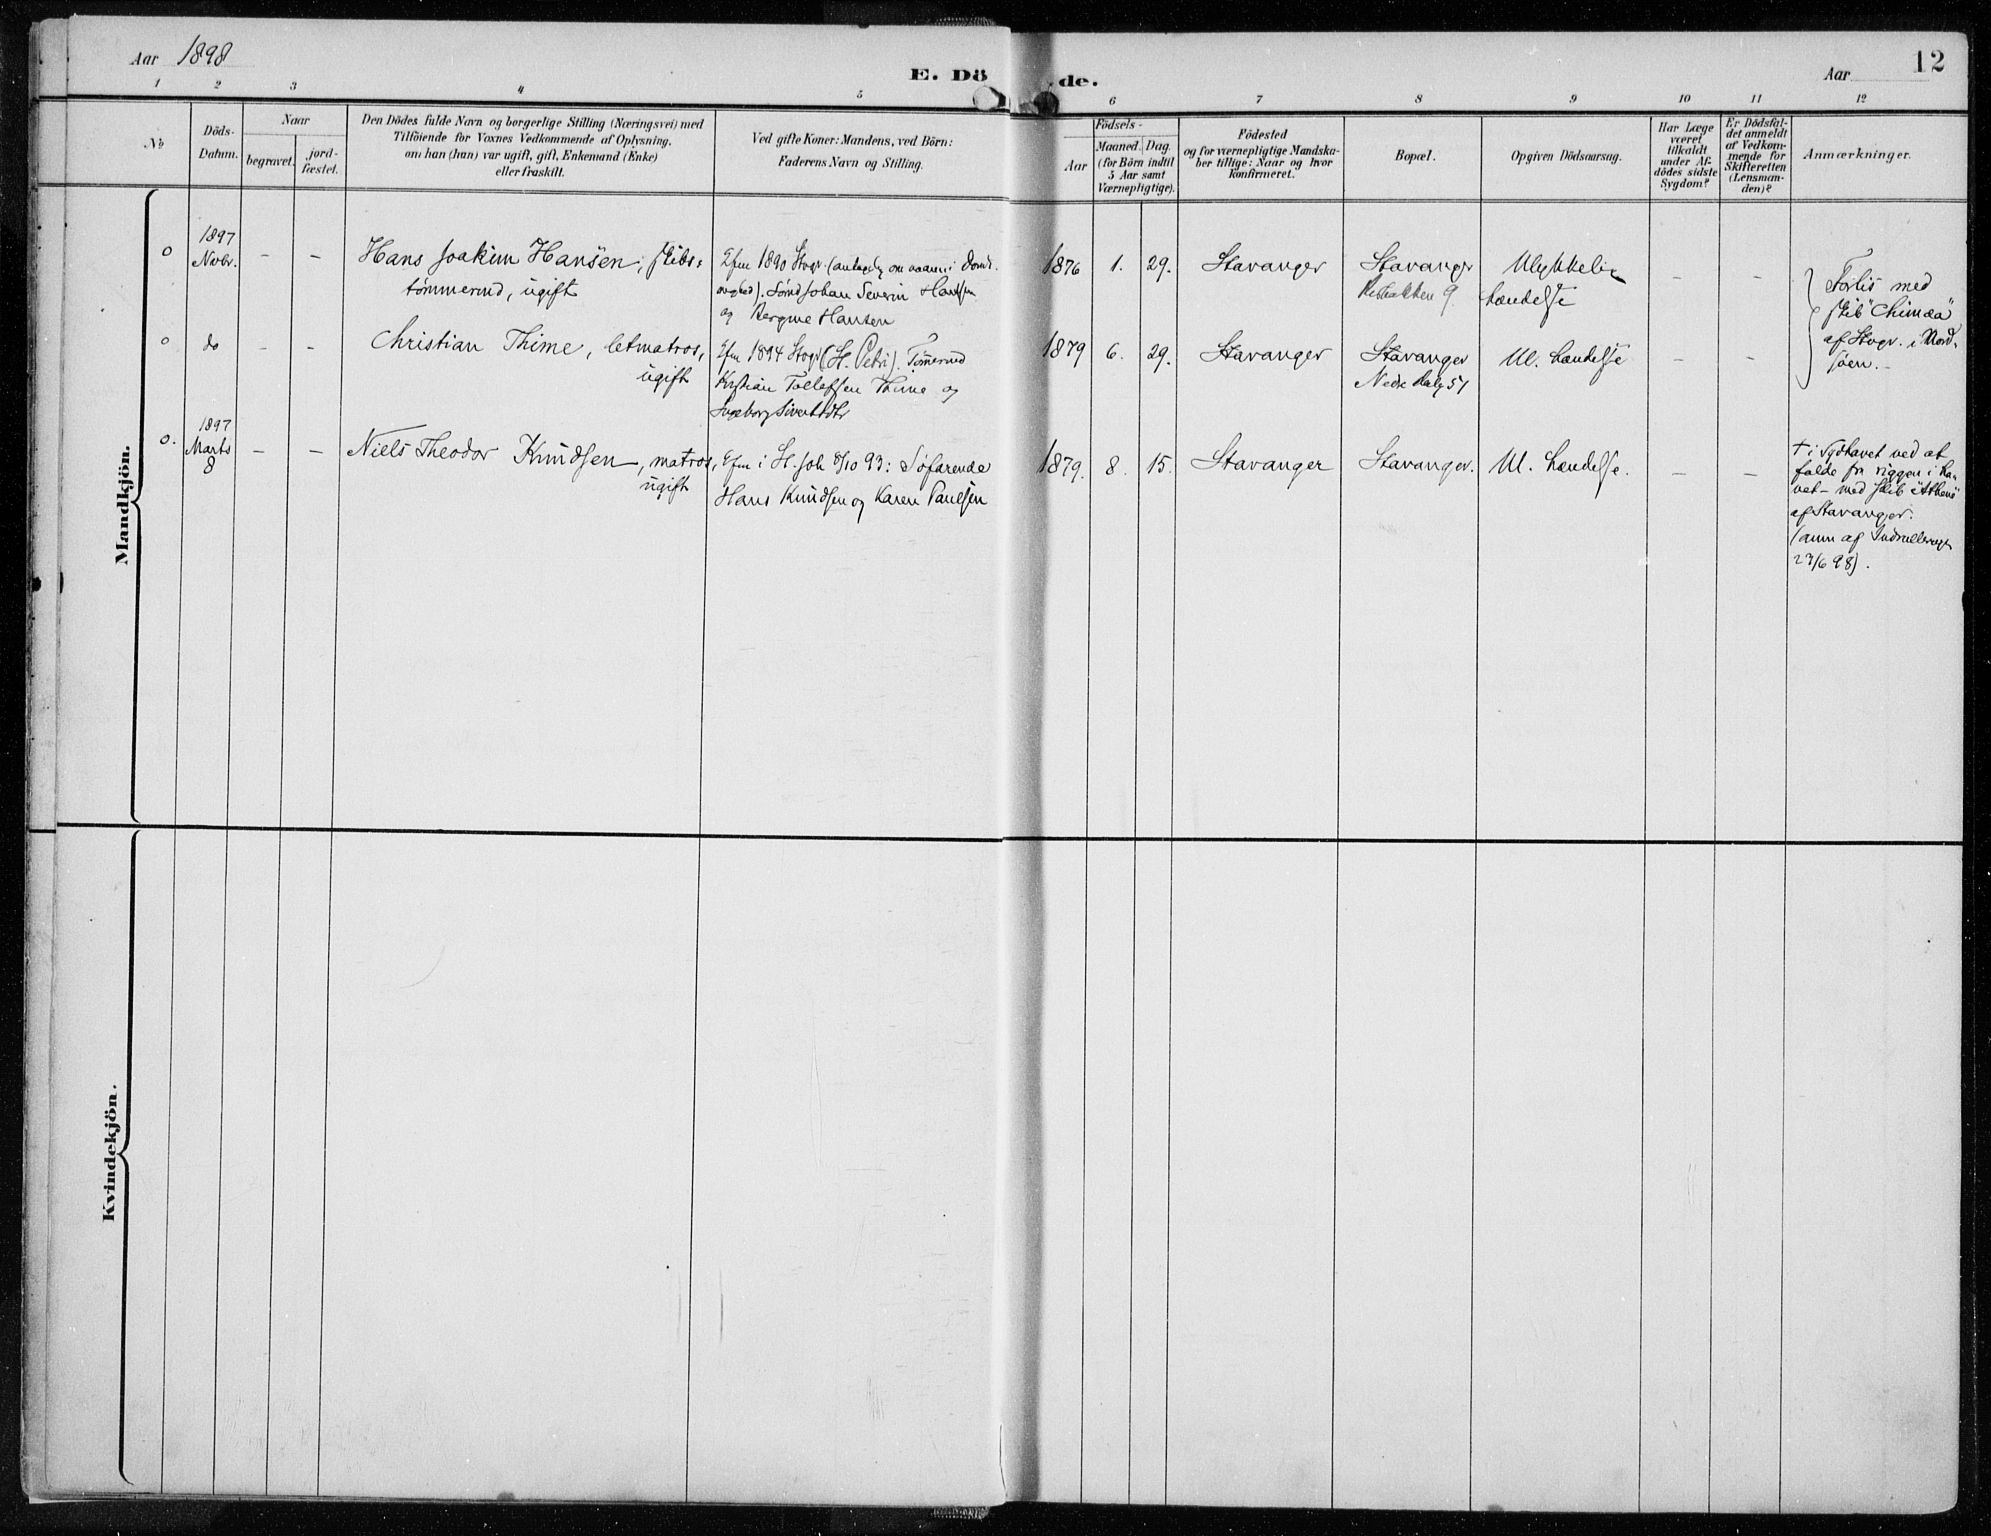 Aar 1898
E. Dö
de.
Aar
12
1 2 3 4 5 6 7 8 9 10 11 12
No
Döds-
Datum.
Naar
begravet.
jord-
fæstet.
Den Dödes fulde Navn og borgerlige Stilling (Næringsvei) med
Tilföiende for Voxnes Vedkommende af Oplysning,
om han (hun) var ugift, gift, Enkemand (Enke)
eller fraskilt.
Ved gifte Koner: Mandens, ved Börn:
Faderens Navn og Stilling.
Födsels-
Aar
Maaned. Dag.
(for Börn indtil
5 Aar samt
Værnepligtige).
Födested
og for værnepligtige Mandska-
ber tillige: Naar og hvor
konfirmeret.
Bopæl.
Opgiven Dödsaarsag.
Har Læge
været
tilkaldt
under Af-
dödes sidste
Sygdom?
Er Dödsfal-
det anmeldt
af Vedkom-
mende for
Skifteretten
(Lensman-
den)?
Anmærkninger.
Mandkjön.
0
1897
Novbr.
– –
Hans Joakim Hansen, skibs-
tømmermd, ugift
Efm 1890 Stvgr. (antagelig om vaaren i Domk.
). Sømd Johan Severin Hansen
og Hansen
1876 1. 29.
Stavanger
Stavanger
9.
Ulykkelig
hændelse
– –
Forlis med
skib "Chimæa"
af Stvgr. i Nord-
sjøen. –
0
do
– –
Christian Thime, letmatros,
ugift
Efm 1894 Stvgr (St. Petri). Tømermd
Kristian Tollefsen Thime og
Ingeborg Sivertsdtr
1879 6. 29.
Stavanger
Stavanger
Nedre 51
Ul. hændelse
– –
0.
1897
Marts
8
– –
Niels Theodor Knudsen, matros,
ugift
Efm i St. Joh 8/10 93: Søfarende
Hans Knudsen og Karen Paulsen
1879. 8. 15.
Stavanger
Stavanger.
Ul. hændelse.
– –
† i Sydhavet ved at
falde fra riggen i ha-
vet – med skib "Athene"
af Stavanger.
(anm af Indrulleringt
23/6 98).
Kvindekjön.